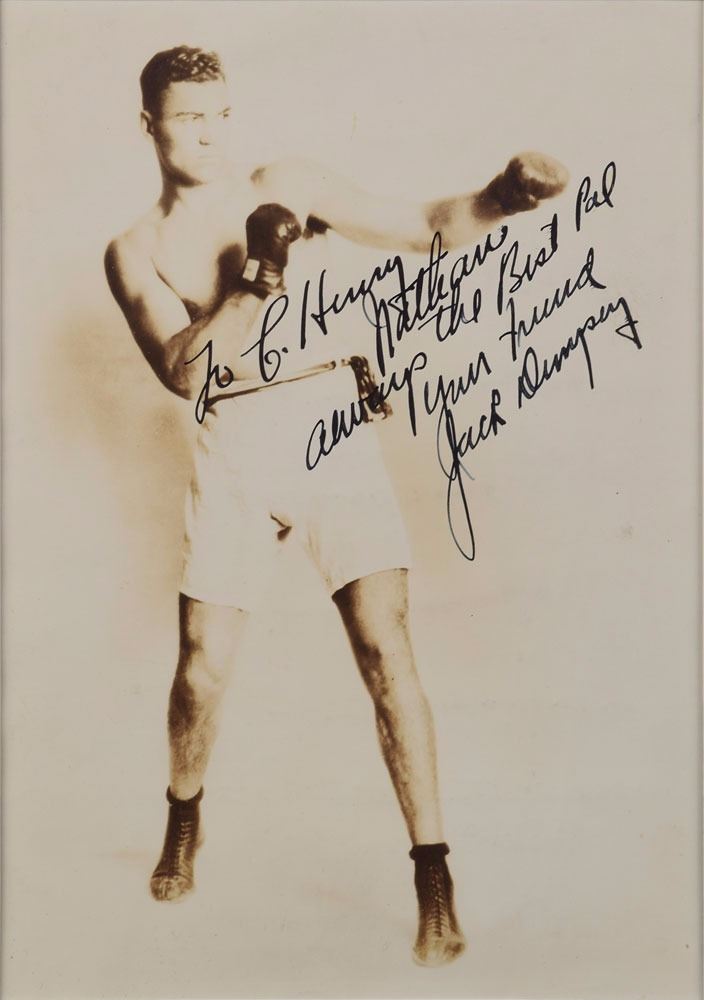 To C. Henry
Nathan
always the Best Pal
Your Friend
Jack Dempsey